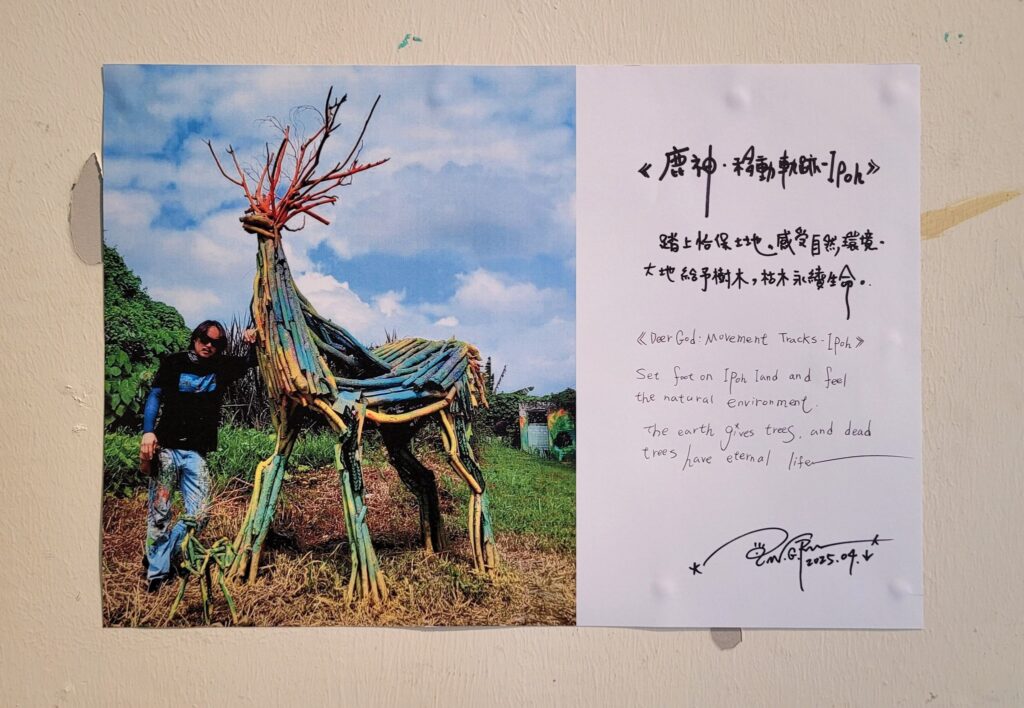 《鹿神·移動軌跡-Ipoh》
踏上怡保土地。感受自然,環境。
大地給予樹木,枯木永續生命。
《Deer God·Movement Tracks-Ipoh》
Set foot on Ipoh land and feel
the natural environment.
The earth gives trees, and dead
trees have eternal life
2025.04.